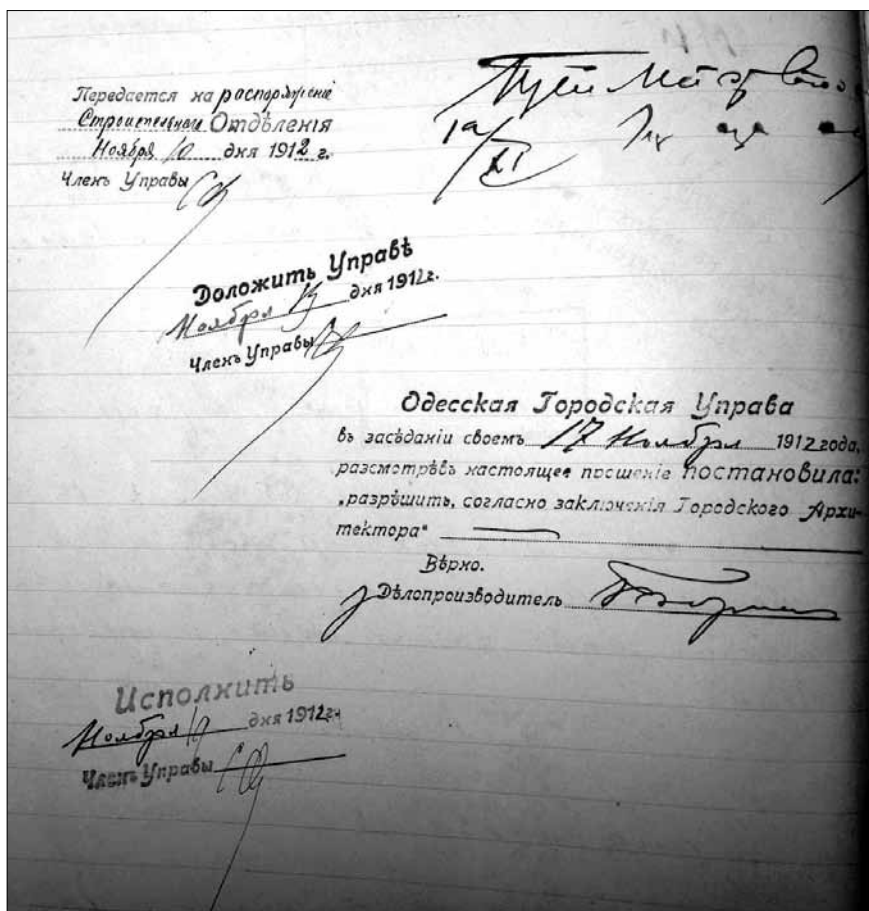 Передается на распоряженіе
Строительнаго Отдѣленія
Ноября 10 дня 1912 г.
Членъ Управы
10/XI
Доложить Управѣ
Ноября дня 1912 г.
Членъ Управы
Одесская Городская Управа
въ засѣданіи своемъ 17 Ноября 1912 года,
разсмотрѣвъ настоящее прошеніе постановила:
„разрѣшить, согласно заключенія Городского Архи-
тектора“
Вѣрно.
Дѣлопроизводитель
Исполнить
Ноября дня 1912 г.
Членъ Управы